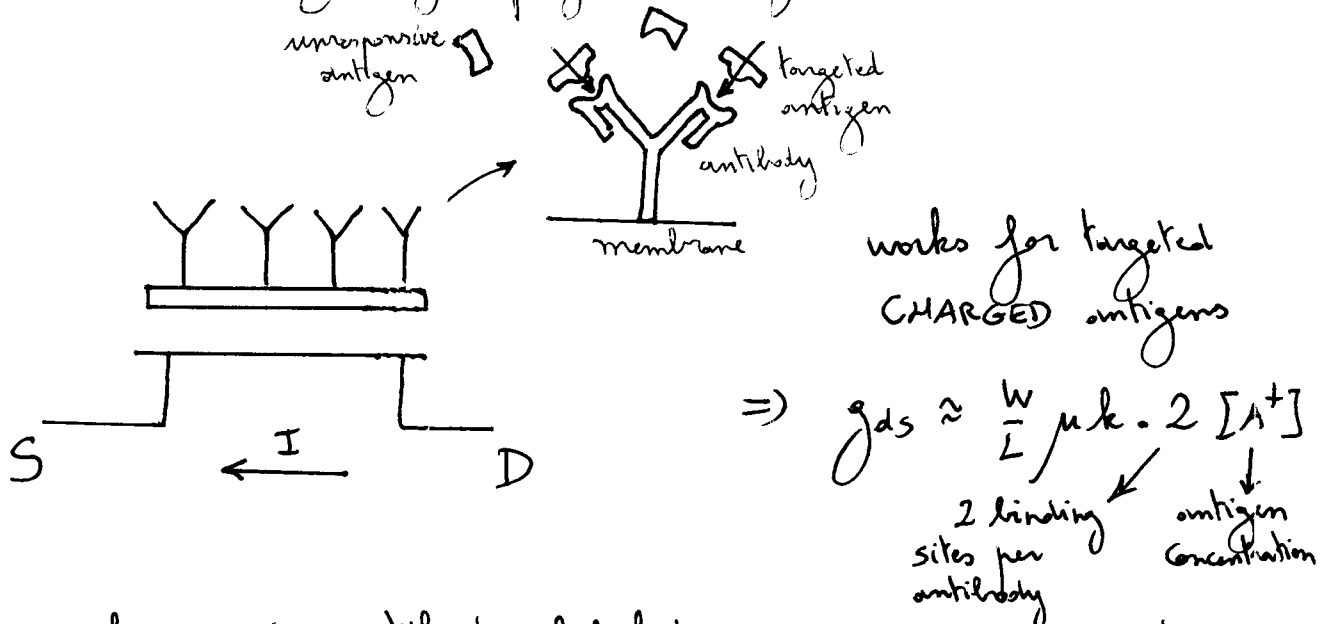 unresponsive
antigen
targeted
antigen
antibody
membrane
works for targeted
CHARGED antigens
S
I
D
=> gds ≈ W/L μk . 2 [A+]
2 binding
sites per
antibody
antigen
concentration